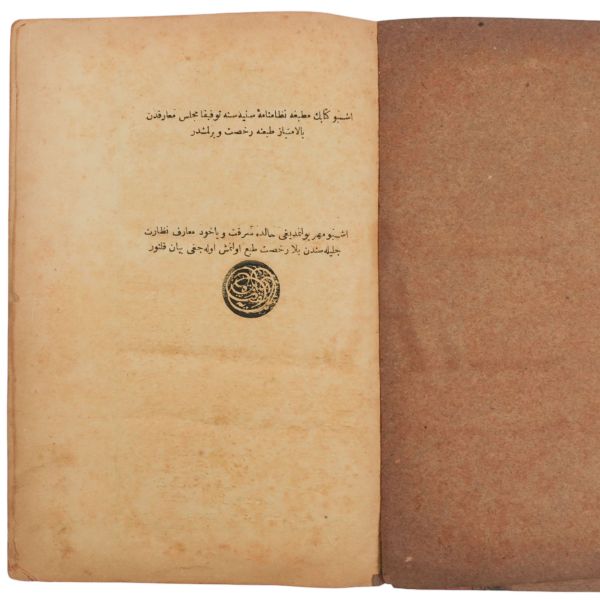 اشبو كتابك مطبعه نظامنامهٔ سنیه سنه توفیقا مجلس معارفدن
بالامتیاز طبعنه رخصت ویرلمشدر
اشبو مهر بولنمدیغی حالده سرقت ویاخود معارف نظارت
جلیله سندن بلا رخصت طبع اولنمش اوله جغی بیان قلنور